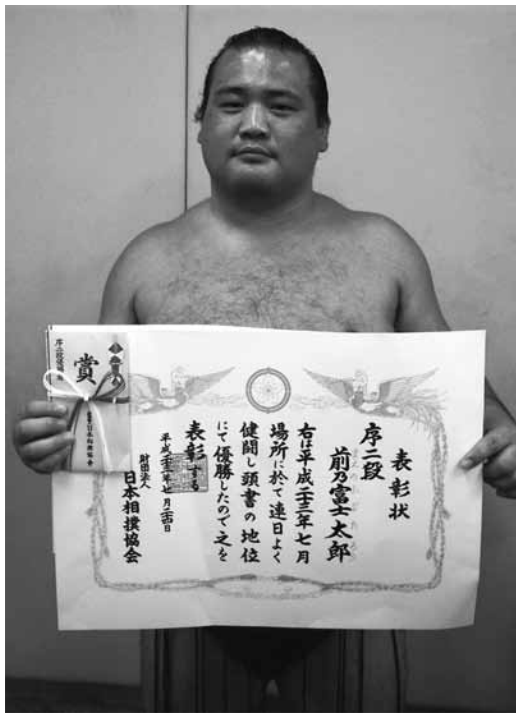 表彰状
序二段
前乃富士太郎
右は平成二十三年七月
場所に於て連日よく
健闘し頭書の地位
にて優勝したので之を
表彰する
平成二十三年七月二十四日
財団法人
日本相撲協会
賞